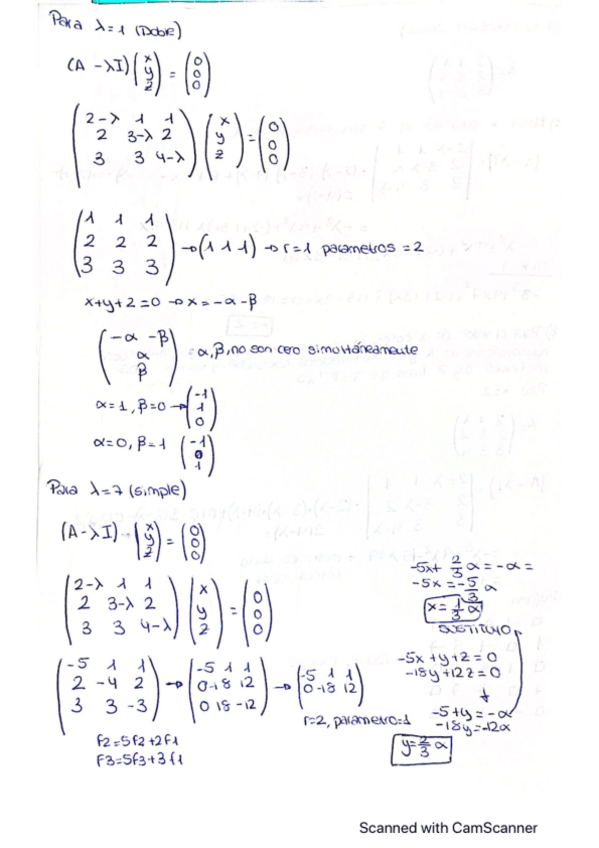 Para λ=1 (Doble)
(A - λI) (x y z) = (0 0 0)
(2-λ 1 1
2 3-λ 2
3 3 4-λ) (x y z) = (0 0 0)
(1 1 1
2 2 2
3 3 3) → (1 1 1) → r=1 parametros = 2
x+y+z=0 → x=-α-β
(-α -β
α
β) = α, β, no son cero simultáneamente
α=1, β=0 → (-1 1 0)
α=0, β=1 (-1 0 1)
Para λ=7 (simple)
(A-λI) · (x y z) = (0 0 0)
(2-λ 1 1
2 3-λ 2
3 3 4-λ) (x y z) = (0 0 0)
(-5 1 1
2 -4 2
3 3 -3) → (-5 1 1
0 -18 12
0 18 -12) → (-5 1 1
0 -18 12)
r=2, parametro=1
f2=5f2+2f1
F3=5f3+3f1
-5x+ 2/3 α = -α =
-5x = -5/3 α
x = 1/3 α
SUSTITUYO
-5x+y+z=0
-18y+12z=0
↓
-5+y=-α
-18y=-12α
y=2/3 α
Scanned with CamScanner